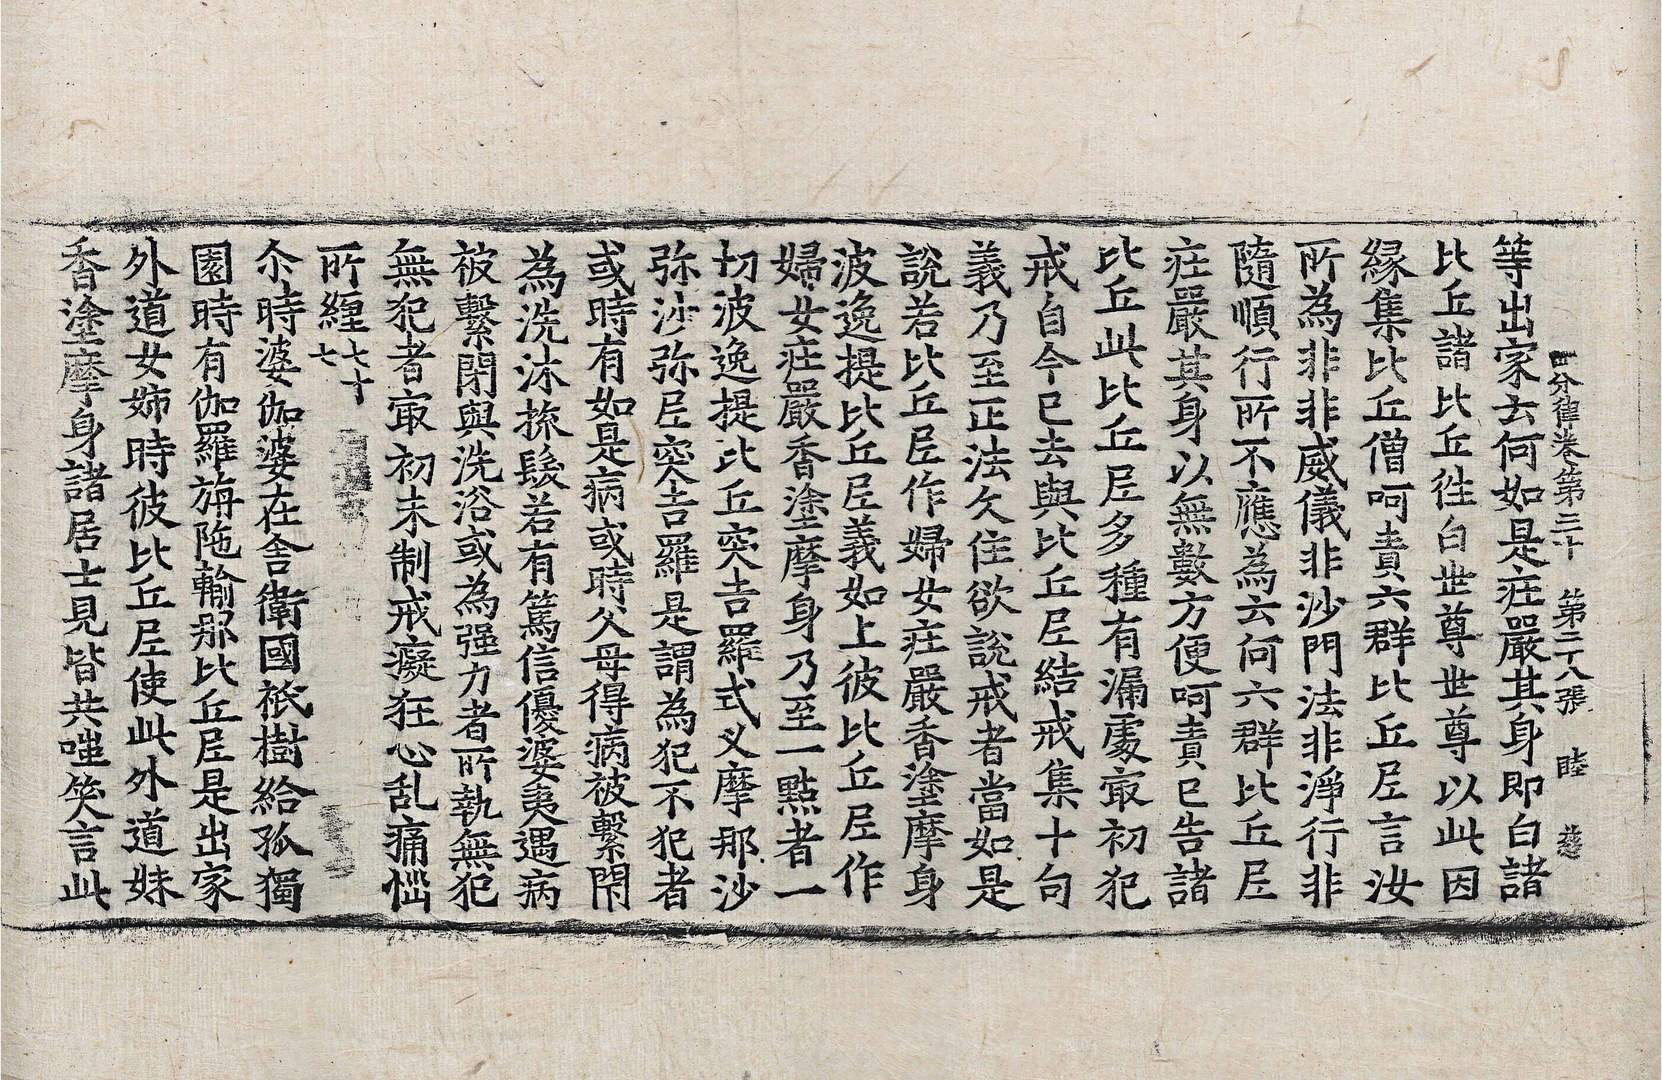 四分律卷第三十 第二十八張 睦 慈
等出家去何如是疘嚴其身即白諸
比丘諸比丘徃白世尊世尊以此因
縁集比丘僧呵責六群比丘尼言汝
所為非非威儀非沙門法非淨行非
隨順行所不應為云何六群比丘尼
疘嚴其身以無數方便呵責已告諸
比丘此比丘尼多種有漏處冣初犯
戒自今已去與比丘尼結戒集十句
義乃至正法久住欲說戒者當如是
說若比丘尼作婦女疘嚴香塗摩身
波逸提比丘尼義如上彼比丘尼作
婦女疘嚴香塗摩身乃至一點者一
切波逸提比丘突吉羅式叉摩那沙
弥沙弥尼突吉羅是謂為犯不犯者
或時有如是病或時父母得病被繫閇
為洗沐梳髮若有篤信優婆夷遇病
被繫閇與洗浴或為强力者所執無犯
無犯者冣初未制戒癡狂心乱痛惱
所纏七十七
尒時婆伽婆在舍衛國祇樹給孤獨
園時有伽羅旃陁輸那比丘尼是出家
外道女姊時彼比丘尼使此外道妹
香塗摩身諸居士見皆共嗤笑言此